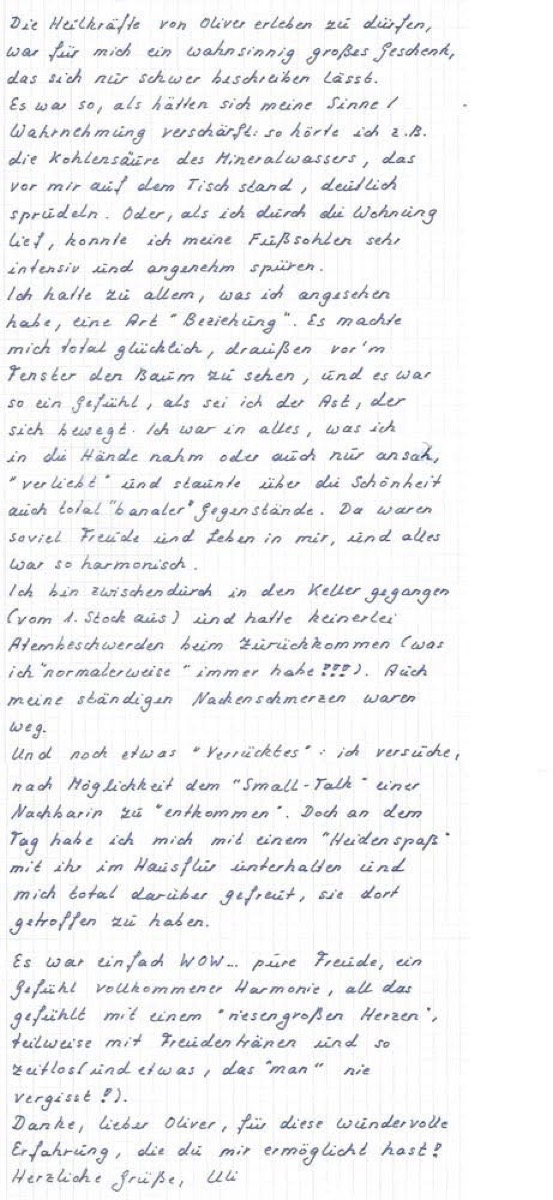 Die Heilkräfte von Oliver erleben zu dürfen,
war für mich ein wahnsinnig großes Geschenk,
das sich nur schwer beschreiben lässt.
Es war so, als hätten sich meine Sinne /
Wahrnehmung verschärft: so hörte ich z.B.
die Kohlensäure des Mineralwassers, das
vor mir auf dem Tisch stand, deutlich
sprudeln. Oder, als ich durch die Wohnung
lief, konnte ich meine Fußsohlen sehr
intensiv und angenehm spüren.
Ich hatte zu allem, was ich angesehen
habe, eine Art "Beziehung". Es machte
mich total glücklich, draußen vor'm
Fenster den Baum zu sehen, und es war
so ein Gefühl, als sei ich der Ast, der
sich bewegt. Ich war in alles, was ich
in die Hände nahm oder auch nur ansah,
"verliebt" und staunte über die Schönheit
auch total "banaler" Gegenstände. Da waren
soviel Freude und Leben in mir, und alles
war so harmonisch.
Ich bin zwischendurch in den Keller gegangen
(vom 1. Stock aus) und hatte keinerlei
Atembeschwerden beim Zurückkommen (was
ich "normalerweise" immer habe!!!). Auch
meine ständigen Nackenschmerzen waren
weg.
Und noch etwas "Verrücktes": ich versuche,
nach Möglichkeit dem "Small-Talk" einer
Nachbarin zu "entkommen". Doch an dem
Tag habe ich mich mit einem "Heidenspaß"
mit ihr im Hausflur unterhalten und
mich total darüber gefreut, sie dort
getroffen zu haben.
Es war einfach WOW... pure Freude, ein
Gefühl vollkommener Harmonie, all das
gefühlt mit einem "riesengroßen Herzen",
teilweise mit Freudentränen und so
zeitlos (und etwas, das "man" nie
vergisst!).
Danke, lieber Oliver, für diese wundervolle
Erfahrung, die du mir ermöglicht hast!
Herzliche Grüße, Uli